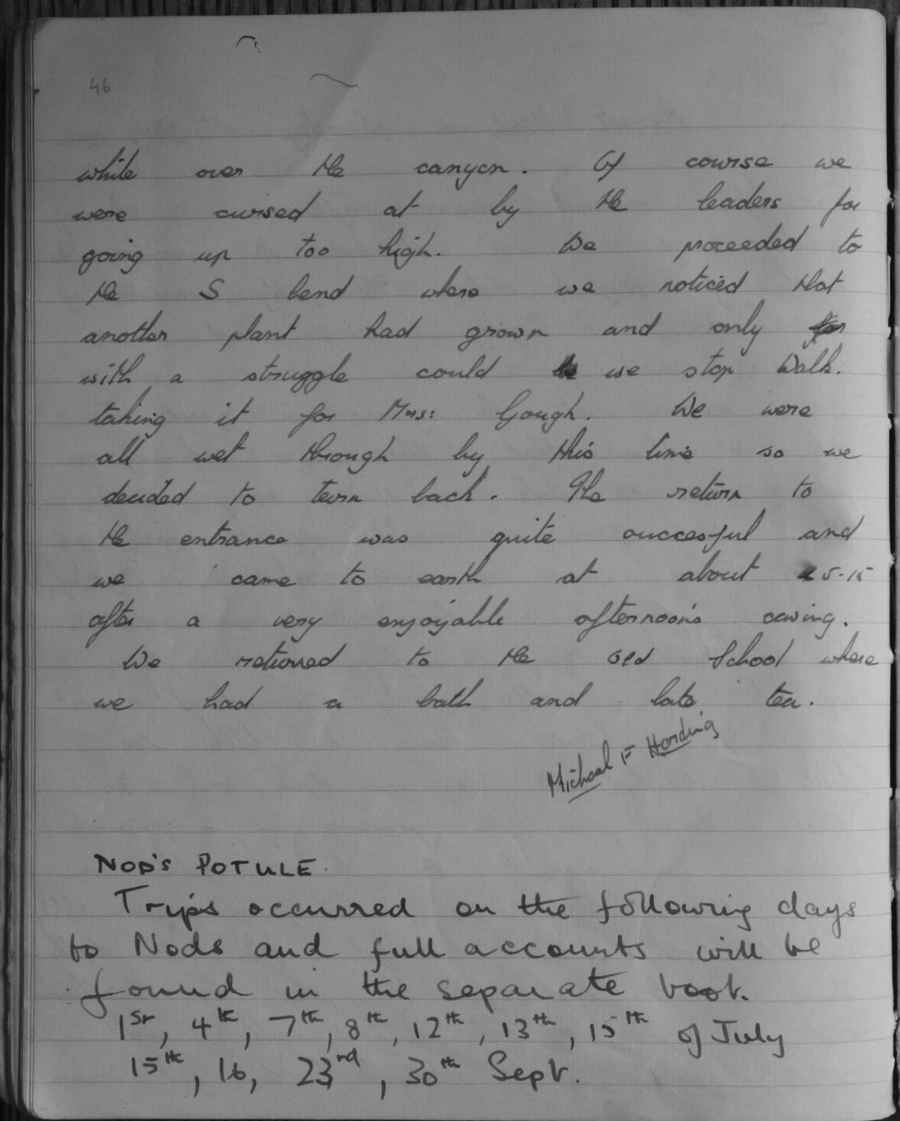 46
while over the canyon. Of course we
were cursed at by the leaders for
going up too high. We proceeded to
the S bend where we noticed that
another plant had grown and only
with a struggle could we stop Walk.
taking it for Miss Gough. We were
all wet through by this time so we
decided to turn back. The return to
the entrance was quite successful and
we came to earth at about 5-15
after a very enjoyable afternoon's caving.
We returned to the Old School where
we had a bath and late tea.
Michael F Harding
NOD'S POTULE.
Trips occurred on the following days
to Nods and full accounts will be
found in the separate book.
1st, 4th, 7th, 8th, 12th, 13th, 15th of July
15th, 16, 23rd, 30th Sept.